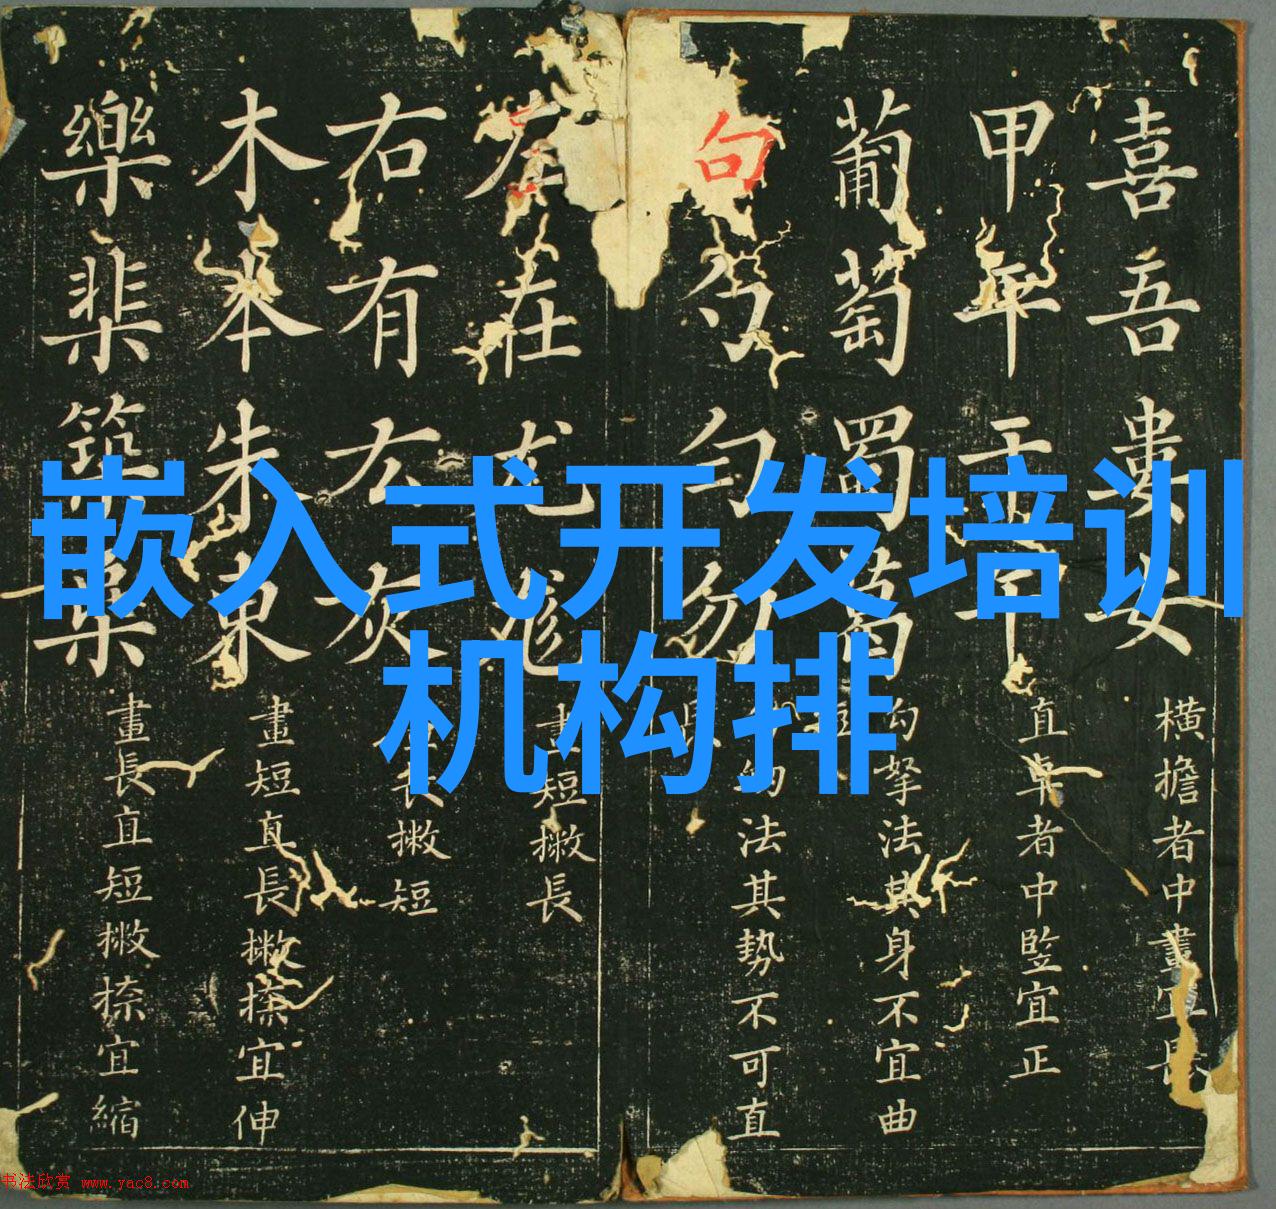 嵌入式开发培训
机构排
喜吾婁
横擔者中畫宜
甲
直者中竪宜正
葡萄蜀
勾拏法其身不宜曲
句勹勿
法其勢不可直
在尤尨
畫短撇長
右有灰
長撇短
木本朱東
畫短直長撇捺宜伸
樂棐築
畫長直短撇捺宜縮
书法欣赏 www.yac8.com